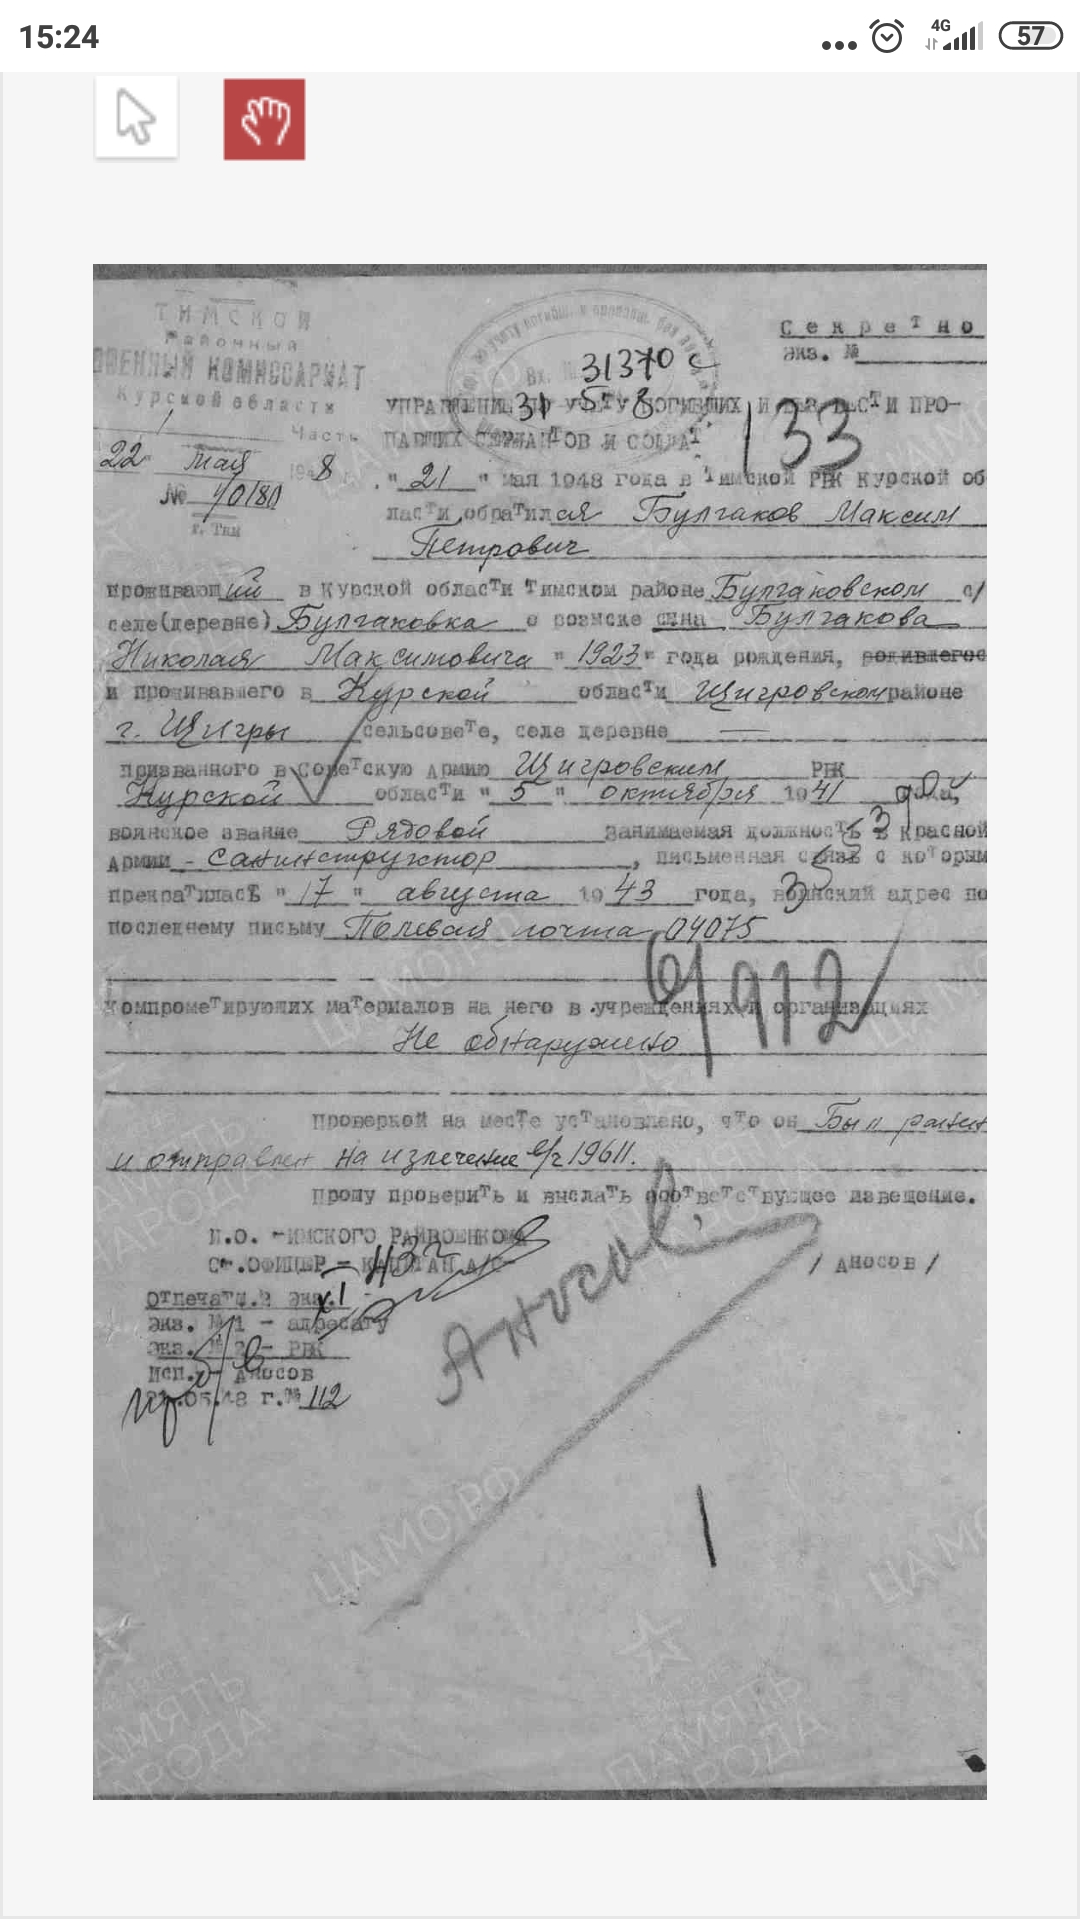 15:24
4G
57
ТИМСКОЙ
Районный
ВОЕННЫЙ КОМИССАРИАТ
Курской области
Часть
22 мая 1948
№ 4/0180
г. Тим
Секретно
экз. №
31370 с
31 5 8
УПРАВЛЕНИЕ ПО УЧЕТУ ПОГИБШИХ И БЕЗ ВЕСТИ ПРО-
ПАВШИХ СЕРЖАНТОВ И СОЛДАТ
133
"21" мая 1948 года в Тимской РВК Курской об
ласти обратился Булгаков Максим
Петрович
проживающий в Курской области Тимском районе Булгаковском с/
селе(деревне) Булгаковка о розыске сына Булгакова
Николая Максимовича "1923" года рождения, родившегос
и проживавшего в Курской области Щигровском районе
г. Щигры сельсовете, селе деревне
призванного в Советскую Армию Щигровским РВК
Курской области "5" октября 1941 года,
воинское звание Рядовой занимаемая должность в Красной
Армии - санинструктор, письменная связь с которым
прекратилась "17" августа 1943 года, воинский адрес по
последнему письму Полевая почта 04075
61912
Компрометирующих материалов на него в учреждениях и организациях
Не обнаружено
Проверкой на месте установлено, что он Был ранен
и отправлен на излечение в/ч 19611.
Прошу проверить и выслать соответствующее извещение.
И.О. ТИМСКОГО РАЙВОЕНКОМА
Ст.ОФИЦЕР - КАПИТАН А/С
/ Аносов /
Аносов
Отпечат. 2 экз.
Экз. № 1 - адресату
Экз. № 2 - РВК
Исп. Аносов
21.05.48 г. № 112
ЦАМО.РФ
ПАМЯТЬ
НАРОДА